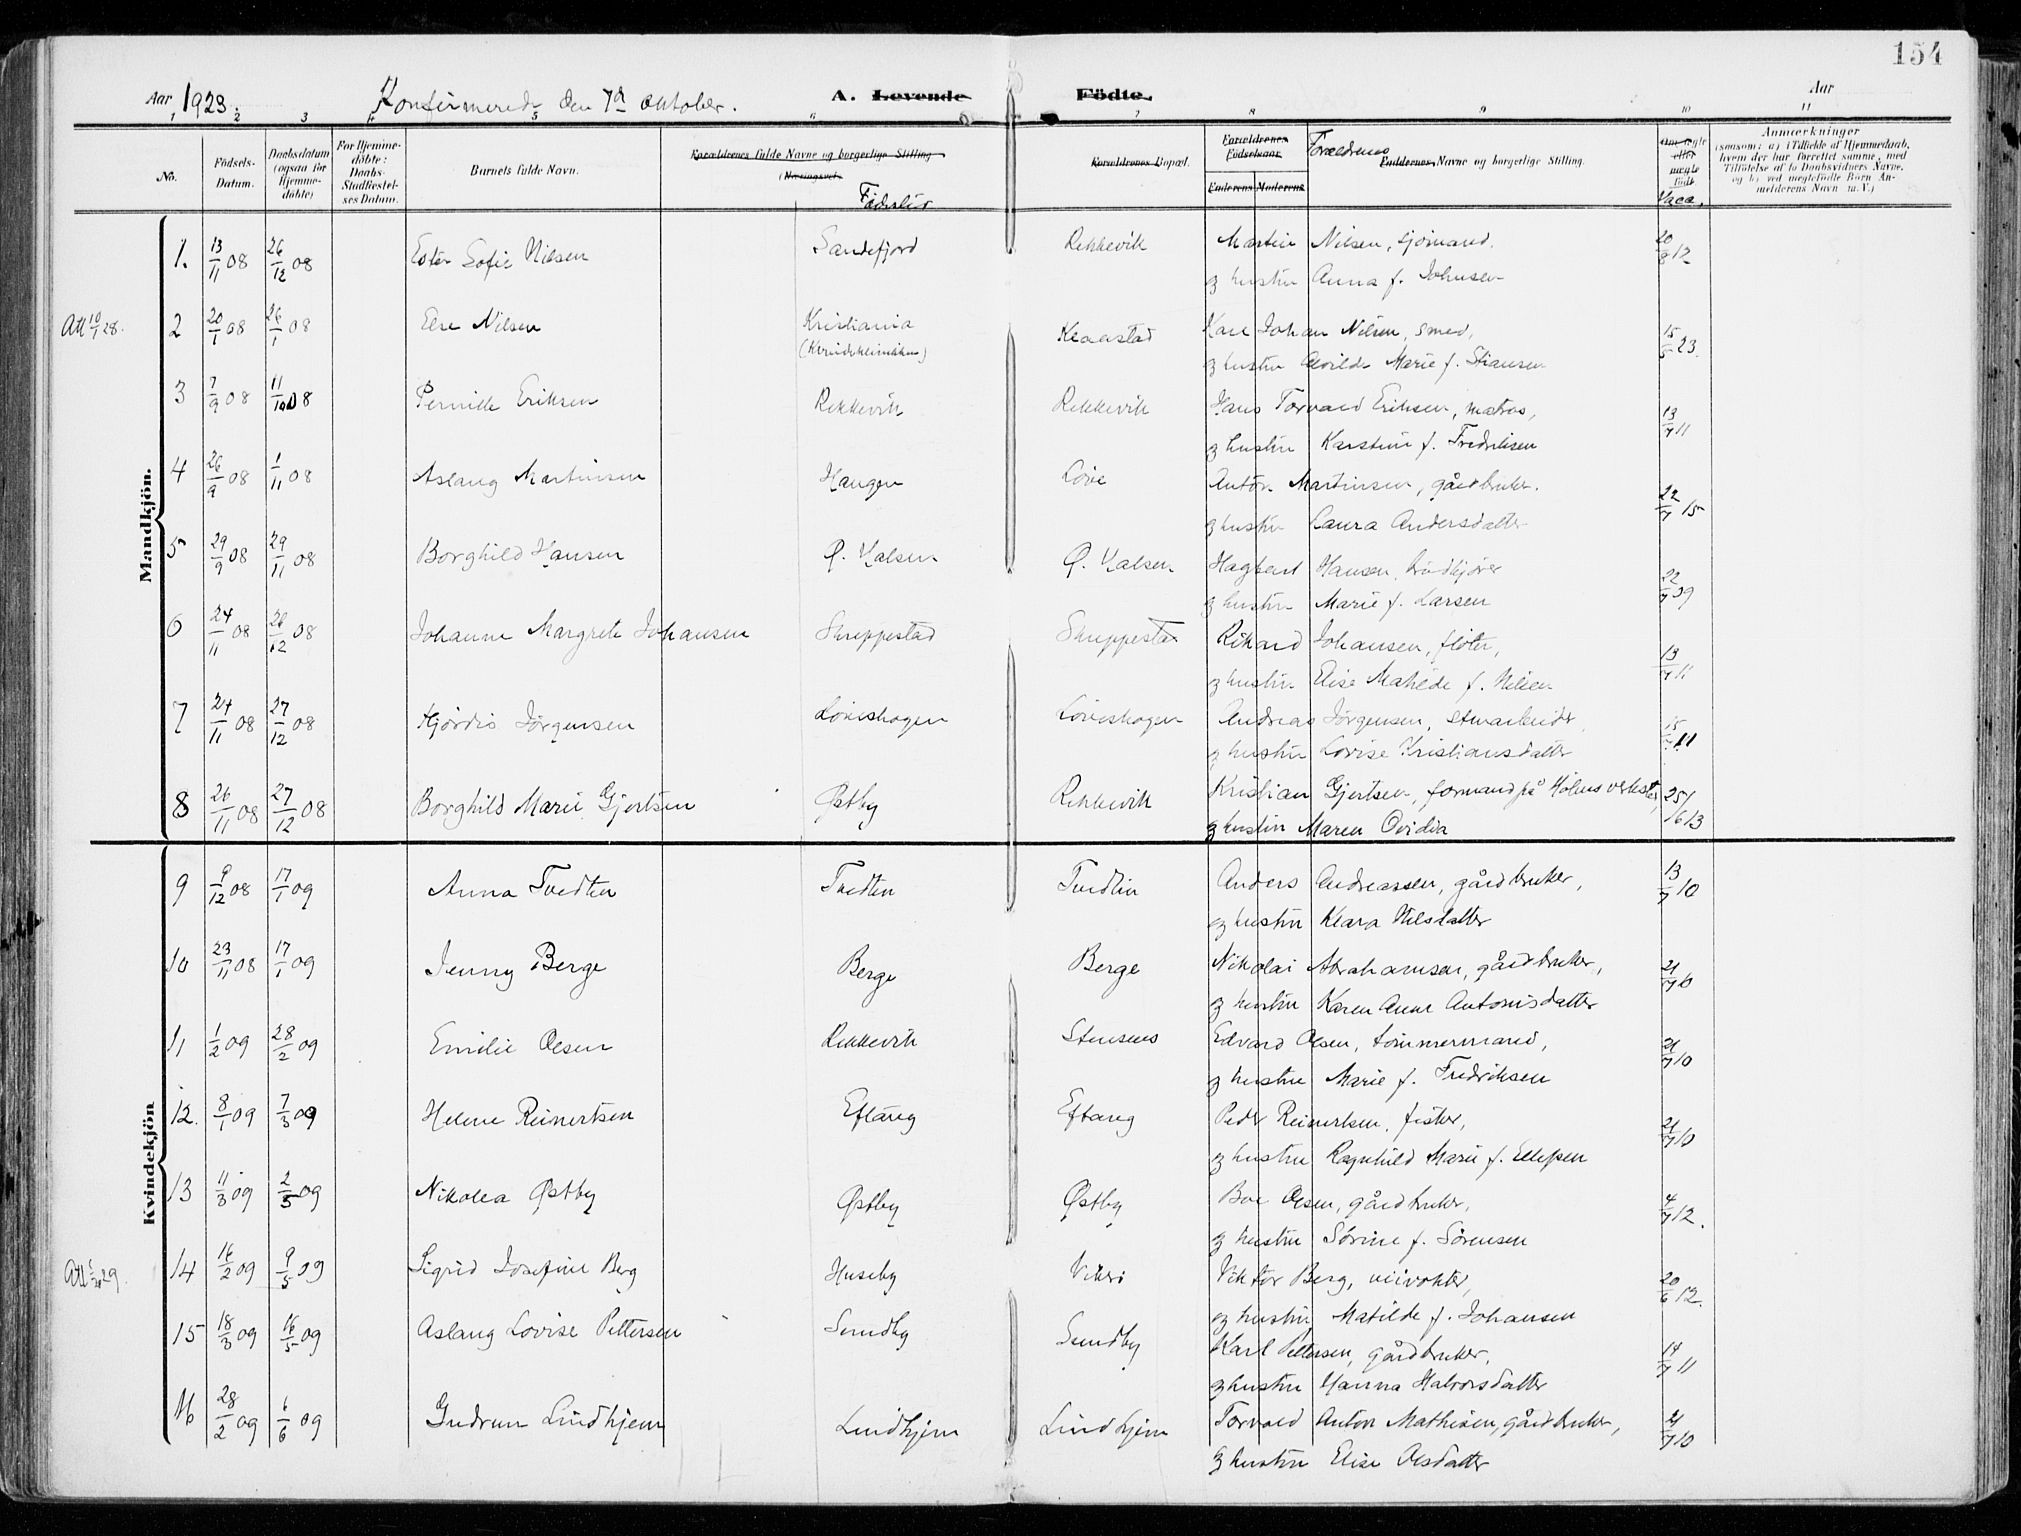 154
Aar 1923. Konfirmerede den 7d oktober. A. Levende Födte. Aar
1 2 3 4 5 6 7 8 9 10 11
No. Födsels-Datum. Daabsdatum (ogsaa for Hjemme-döbte) For Hjemme-döbte: Daabs-Stadfæstel-ses Datum. Barnets fulde Navn. Forældrenes fulde Navne og borgerlige Stilling (Næringsvei. Fødested Forældrenes Bopæl. Forældrenes Födselsaar Faderens Moderens Forældrenes Faddernes Navne og borgerlige Stilling. Om ægte eller uægte födt. Vacc. Anmærkninger (saasom: a) i Tilfælde af Hjemmedaab, hvem der har forrettet samme, med Tilföielse af to Daabsvidners Navne, og b) ved uægtefödte Börn An-melderens Navn m. V.)
Mandkjön.
1. 13/11 08 26/12 08 Ester Sofie Nilsen Sandefjord Rekkevik Martin Nilsen, sjömand.
og hustru Anna f. Johnsen 20/8 12
Att 10/1 28. 2 20/1 08 26/1 08 Else Nilsen Kristiania Klaastad Karl Johan Nilsen, smed,
(Kvindeklinikken) og hustru Alvilde Marie f. Stiansen 15/5 23.
3 7/9 08 11/10 08 Pernille Eriksen Rekkevik Rekkevik Hans Torvald Eriksen, matros,
og hustru Karstine f. Fredriksen 13/7 11
4 26/9 08 1/11 08 Aslaug Martinsen Haugen Løve Anton Martinsen, gårdbruker.
og hustru Laura Andersdatter 22/7 15
5 29/9 08 29/11 08 Borghild Hansen Ø. Halsen Ø. Halsen Hagbart Hansen, brødkjører
og hustru Marie f. Larsen 22/7 09
6 24/11 08 26/12 08 Johanne Margrete Johansen Skreppestad Skreppestad Rikard Johansen, fløter,
og hustru Elise Matilde f. Nilsen 13/7 11
7 24/11 08 27/12 08 Hjørdis Jørgensen Løveskogen Løveskogen Andreas Jørgensen, stenarbeider
og hustru Lovise Kristiansdatter 11
8 26/11 08 27/12 08 Borghild Marie Gjertsen Østby Rekkevik Kristian Gjertsen, formand på Holms verksted,
og hustru Maren Ovidia 25/6 13
Kvindekjön
9 9/12 08 17/1 09 Anna Tvedten Tvedten Tvedten Anders Andreassen, gårdbruker,
og hustru Klara Nilsdatter 13/7 10
10 23/11 08 17/1 09 Jenny Berge Berge Berge Nikolai Abrahamsen, gårdbruker,
og hustru Karen Anne Antonisdatter 21/7 10
11 1/2 09 28/2 09 Emilie Olsen Rekkevik Stensnes Edvard Olsen, tømmermand,
og hustru Marie f. Fredriksen 21/7 10
12. 8/1 09 7/3 09 Helene Reinertsen Eftang Eftang Peder Reinertsen, fisker,
og hustru Ragnhild Marie f. Ellefsen 21/7 10
13 11/3 09 2/5 09 Nikolea Østby Østby Østby Boe Olsen, gårdbruker,
og hustru Sørine f. Sørensen 4/7 12.
Att 29. 14 16/2 09 9/5 09 Sigrid Josefine Berg Huseby Viktor Berg, veivokter,
og hustru Matilde f. Johansen 20/6 12.
15 18/3 09 16/5 09 Aslaug Lovise Pettersen Sundby Sundby Karl Pettersen, gårdbruker,
og hustru Hanna Halvorsdatter 14/7 11
16 28/2 09 6/6 09 Gudrun Lindhjem Lindhjem Lindhjem Torvald Anton Mathisen, gårdbruker,
og hustru Elise Olsdatter 21/7 10